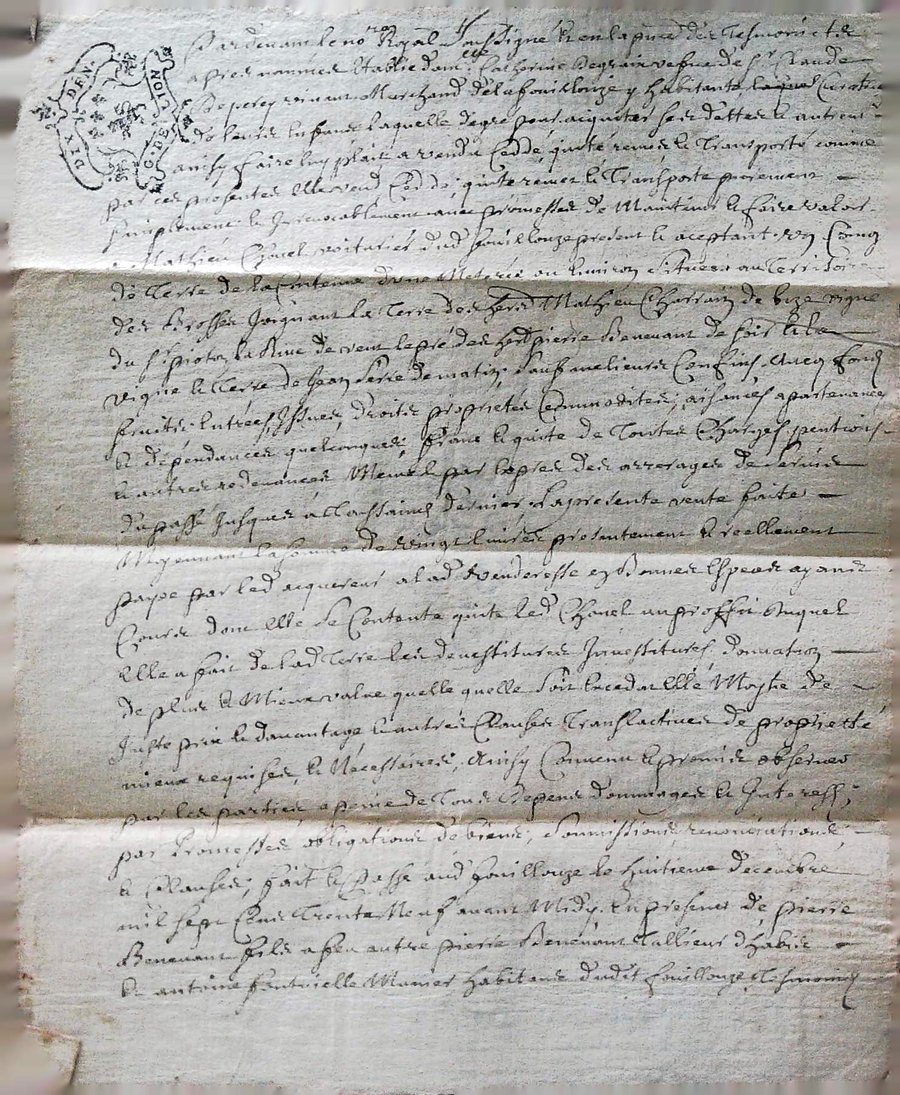 DIX DEN. GDE LION
Pardevant le no.re Royal soussigné et en la pnce des Tesmoins cts
apres nommes Etablie dame Catherine Degrain vefve de Sr Claude
marchand de la fouillouze y habitante
de leurs Enfans laquelle de gre pour acquiter ses dettes et autrem.t
ainsy faire luy plait a vendu Ceddé, quité remis et Transporté comme
par ces presentes Elle vend Cedde quite remet et Transporte purement
simplement et Irrevocablement avec promesses de Maintenir et faire valoir
a Mathieu Chovel voiturier dud fouillouze present et aceptant, un Coing
de Terre de la Contenue d'une Meterée ou Environ Situees au Territoire
des brosses Joignant la Terre des hers Mathieu Charrain de bize vigne
du Sr piotay la Rive de vent le pré des hers pierre Benevant de soir et la
vigne et Terre de Jean Serre de matin, Sauf melieurs Confins, avec fond
fruits, Entrées, Issues, droits proprietes Commodites, aisances apartenances
et dépendances quelconques, franc et quite de Toutes Charges pentions
et autres redevances Mesme par Expres des arrerages de servis
du passe Jusques a la toussaint dernier, la presente vente faite
Moyennant la somme de vingt livres presentement et reellement
payée par led acquereur a lad venderesse en Bonnes Especes ayant
Cours dont Elle se Contente quite led Chovel au proffit duquel
Elle a fait de lad Terre les devestitures Investitures, donnation
de plus et Mieux value quelle quelle soit Excedat Elle Moytie de
Juste prix et davantage et autres Clauses Translatives de proprietté
mieux requises, et Nécessaires, Ainsy Convenu et promis observer
par les parties a peine de Tous Depens dommages et Interests,
par Promesses obligations de biens, Soumissions, renonciations,
et Clauses, fait et Passé aud fouillouze le huitieme decembre
mil sept Cens Trente Neuf avant Midy, En presence de pierre
Benevant fils a feu autre pierre Benevant Tallieur d'habits
et antoine fontvielle Manier habitans dudit fouillouze Tesmoins